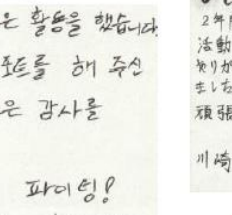 은 활동을 했습니다
포트를 해 주신
은 감사를
파이팅!
2年
活動
ありが
ました
頑張
川崎